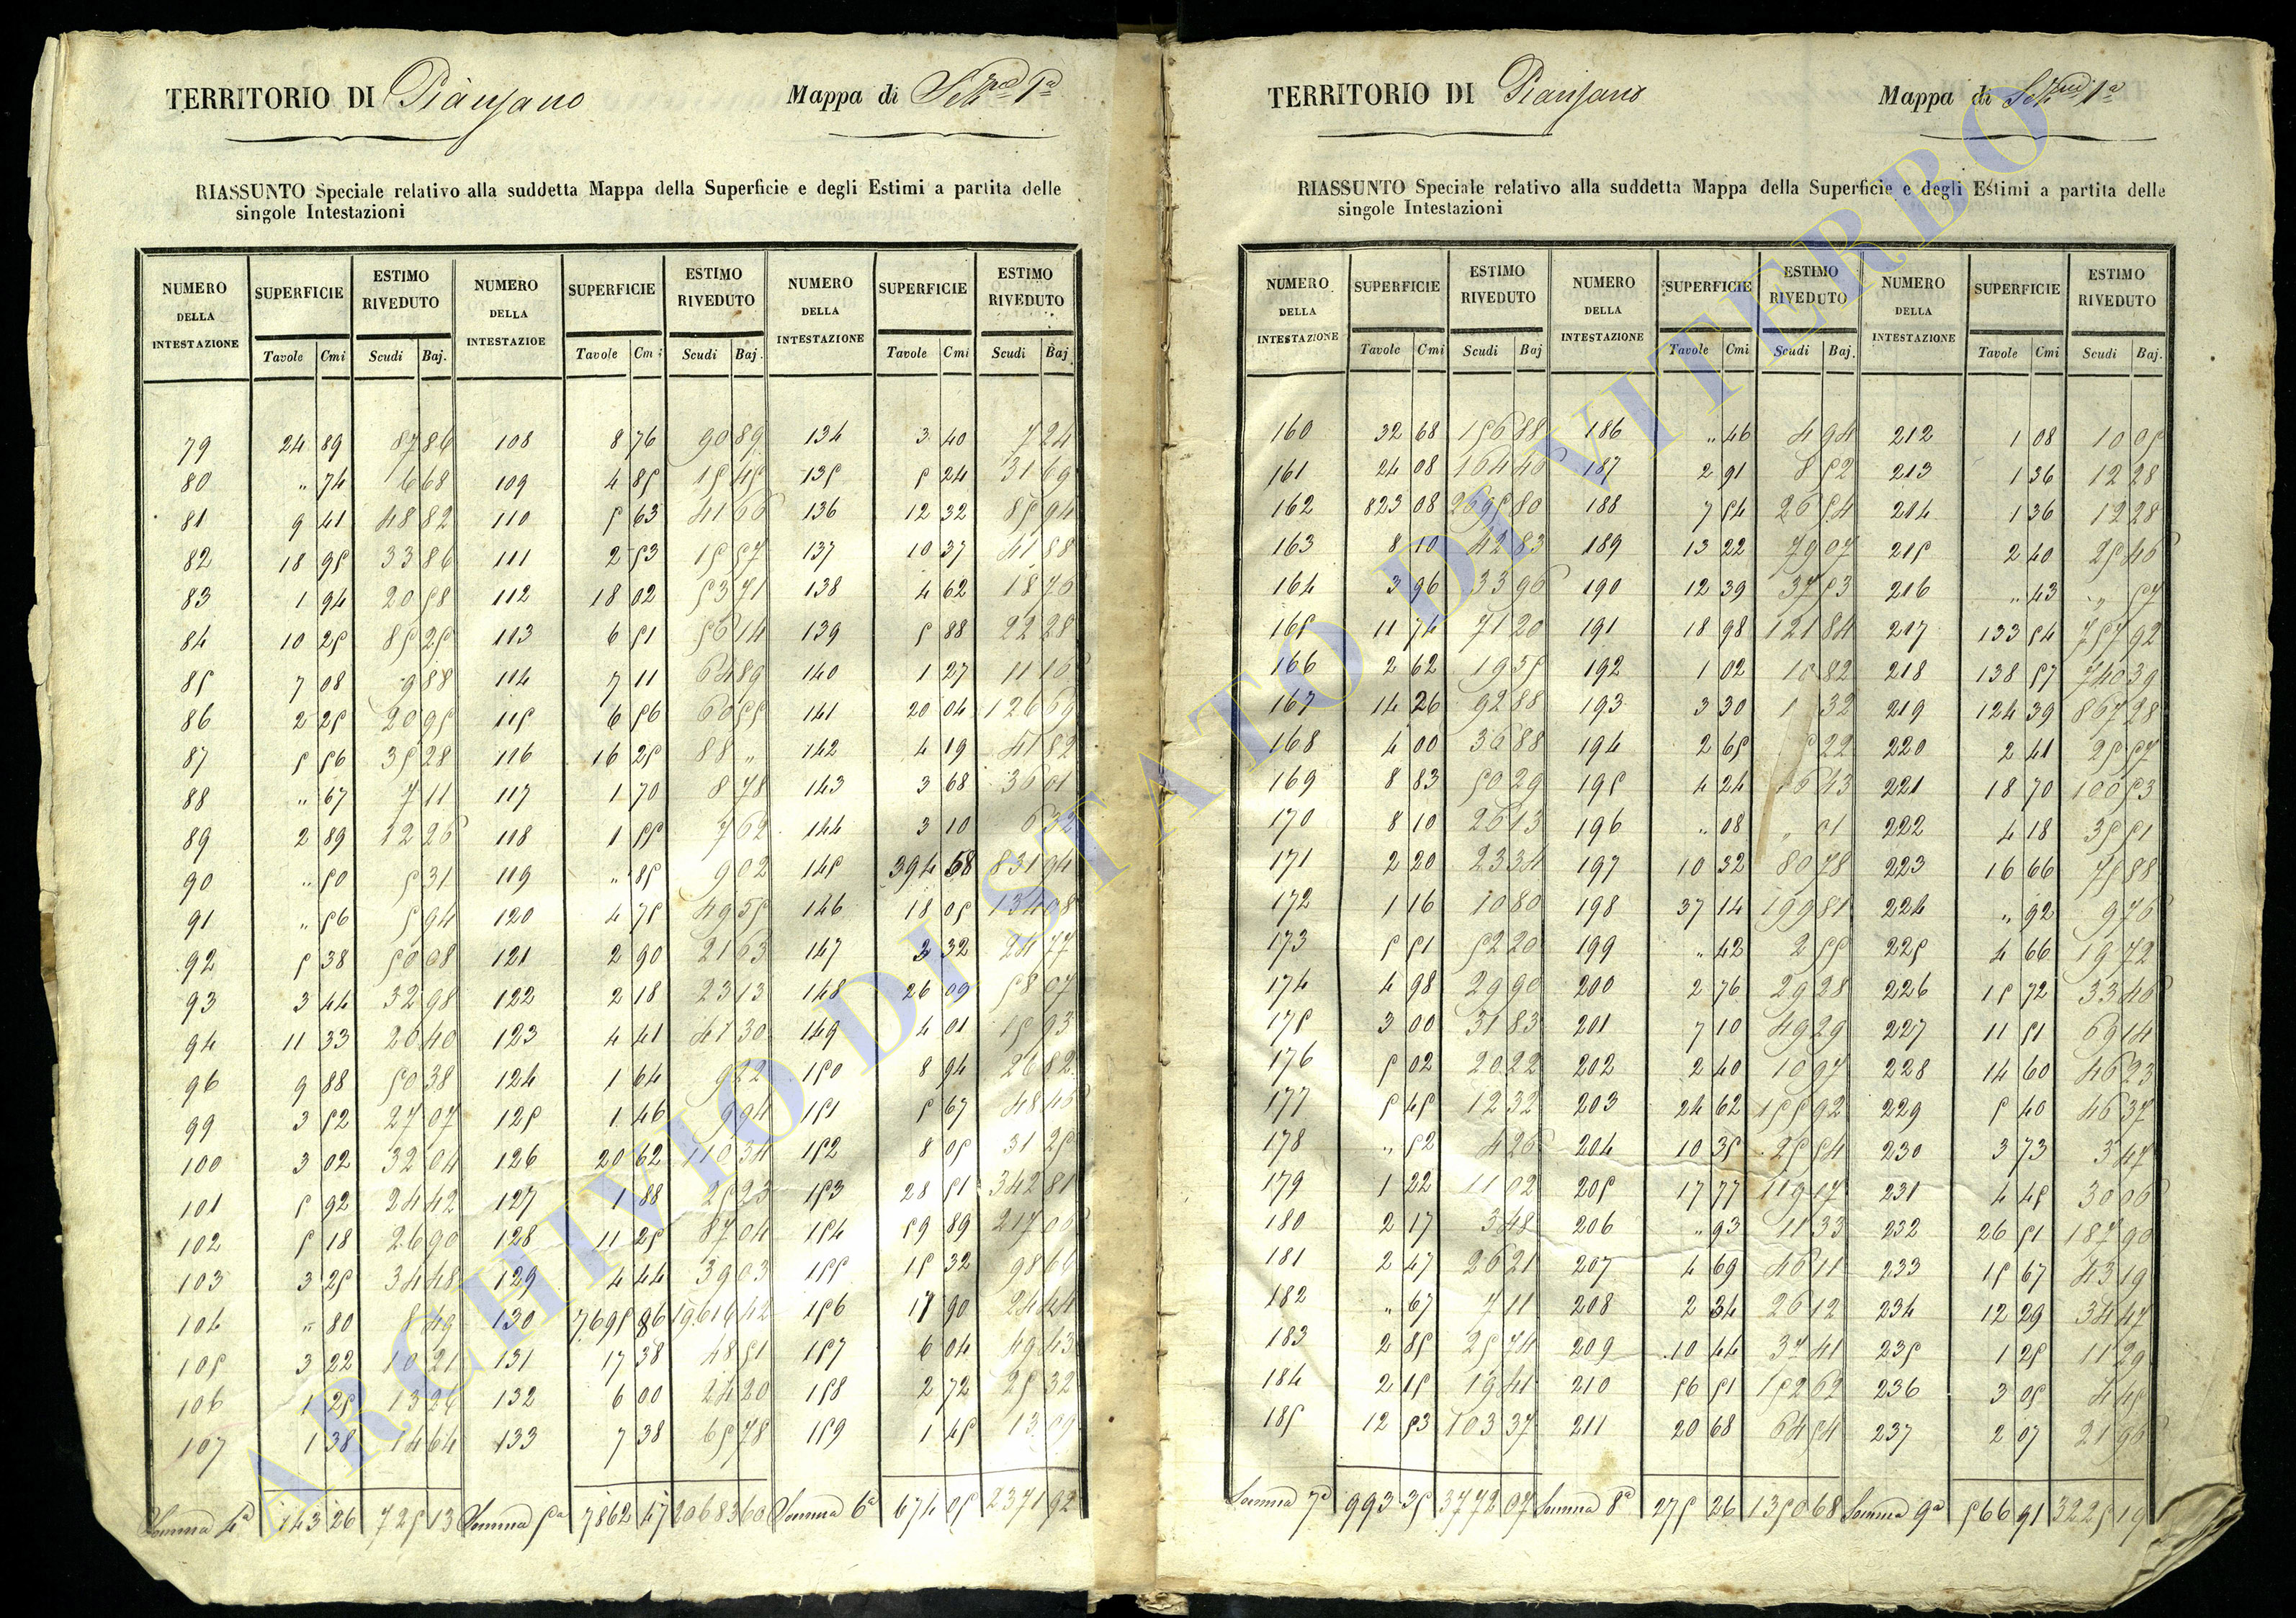 TERRITORIO DI Pianzano Mappa di Sez.ne 1a
RIASSUNTO Speciale relativo alla suddetta Mappa della Superficie e degli Estimi a partita delle
singole Intestazioni
NUMERO DELLA INTESTAZIONE SUPERFICIE ESTIMO RIVEDUTO NUMERO DELLA INTESTAZIOE SUPERFICIE ESTIMO RIVEDUTO NUMERO DELLA INTESTAZIONE SUPERFICIE ESTIMO RIVEDUTO
Tavole Cmi Scudi Baj. Tavole Cmi Scudi Baj. Tavole Cmi Scudi Baj
79 24 89 87 86 108 8 76 90 89 134 3 40 7 24
80 „ 74 6 68 109 4 85 15 45 135 5 24 31 69
81 9 41 48 82 110 5 63 41 66 136 12 32 85 94
82 18 95 33 86 111 2 53 15 57 137 10 37 41 88
83 1 94 20 58 112 18 02 53 71 138 4 62 18 76
84 10 25 85 25 113 6 51 56 14 139 5 88 22 28
85 7 08 9 88 114 7 11 64 89 140 1 27 11 16
86 2 25 20 95 115 6 56 60 55 141 20 04 126 69
87 5 56 35 28 116 16 25 88 „ 142 4 19 41 82
88 „ 67 7 11 117 1 70 8 78 143 3 68 36 01
89 2 89 12 26 118 1 55 7 62 144 3 10 6 32
90 „ 50 5 31 119 „ 85 9 02 145 394 68 831 94
91 „ 56 5 94 120 4 75 49 55 146 18 05 134 08
92 5 38 50 08 121 2 90 21 63 147 2 32 24 77
93 3 44 32 98 122 2 18 23 13 148 26 09 58 07
94 11 33 20 40 123 4 41 41 30 149 4 01 15 93
96 9 88 50 38 124 1 64 9 22 150 8 94 26 82
99 3 52 27 07 125 1 46 9 94 151 5 67 48 45
100 3 02 32 04 126 20 62 110 34 152 8 05 31 25
101 5 92 24 42 127 1 88 25 23 153 28 51 342 81
102 5 18 26 90 128 11 25 87 04 154 59 89 217 06
103 3 25 34 48 129 4 44 39 03 155 15 32 98 66
104 „ 80 8 49 130 7695 86 19616 42 156 17 90 24 44
105 3 22 10 21 131 17 38 48 51 157 6 04 49 43
106 1 25 13 26 132 6 00 24 20 158 2 72 25 32
107 1 38 14 64 133 7 38 65 78 159 1 45 13 09
Somma 4a 143 26 725 13 Somma 5a 7862 47 20683 60 Somma 6a 674 05 2371 92
TERRITORIO DI Pianzano Mappa di Sez.ne 1a
RIASSUNTO Speciale relativo alla suddetta Mappa della Superficie e degli Estimi a partita delle
singole Intestazioni
NUMERO DELLA INTESTAZIONE SUPERFICIE ESTIMO RIVEDUTO NUMERO DELLA INTESTAZIONE SUPERFICIE ESTIMO RIVEDUTO NUMERO DELLA INTESTAZIONE SUPERFICIE ESTIMO RIVEDUTO
Tavole Cmi Scudi Baj Tavole Cmi Scudi Baj. Tavole Cmi Scudi Baj.
160 32 68 156 88 186 „ 46 4 94 212 1 08 10 05
161 24 08 164 46 187 2 91 8 52 213 1 36 12 28
162 823 08 2695 80 188 7 54 26 54 214 1 36 12 28
163 8 10 42 83 189 13 22 79 07 215 2 40 25 46
164 3 96 33 96 190 12 39 37 53 216 „ 43 „ 57
165 11 74 71 20 191 18 98 121 84 217 133 54 757 92
166 2 62 19 55 192 1 02 10 82 218 138 57 740 39
167 14 26 92 88 193 3 30 1 32 219 124 39 867 28
168 4 00 36 88 194 2 65 5 22 220 2 41 25 57
169 8 83 50 29 195 4 24 16 43 221 18 70 100 53
170 8 10 26 13 196 „ 08 „ 01 222 4 18 35 51
171 2 20 23 34 197 10 32 80 78 223 16 66 75 88
172 1 16 10 80 198 37 14 199 81 224 „ 92 9 76
173 5 51 52 20 199 „ 42 2 55 225 4 66 19 72
174 4 98 29 90 200 2 76 29 28 226 15 72 33 46
175 3 00 31 83 201 7 10 49 29 227 11 51 69 14
176 5 02 20 22 202 2 40 10 97 228 14 60 46 23
177 5 45 12 32 203 24 62 155 92 229 5 40 46 37
178 „ 52 4 26 204 10 35 25 54 230 3 73 3 47
179 1 22 11 02 205 17 77 119 17 231 4 45 30 06
180 2 17 3 48 206 „ 93 11 33 232 26 51 187 90
181 2 47 26 21 207 4 69 46 11 233 15 67 43 19
182 „ 67 7 11 208 2 34 26 12 234 12 29 34 47
183 2 85 25 74 209 10 44 37 41 235 1 25 11 29
184 2 15 19 41 210 56 51 152 62 236 3 05 4 45
185 12 53 103 37 211 20 68 64 54 237 2 07 21 96
Somma 7a 993 35 3772 07 Somma 8a 275 26 1350 68 Somma 9a 566 91 3225 19
ARCHIVIO DI STATO DI VITERBO